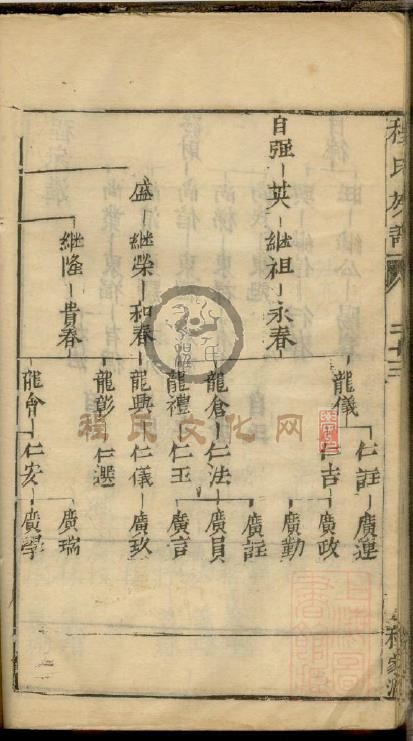 程氏族譜
二十三
自强 英 繼祖 永春
盛 繼榮 和春
繼隆 貴春
龍儀 仁註 廣運
仁吉 廣政
廣勤
廣註
龍倉 仁法 廣員
龍禮 仁玉 廣言
龍興 仁儀 廣玖
龍彰 仁選
龍會 仁安 廣瑞
廣學
程氏文化网